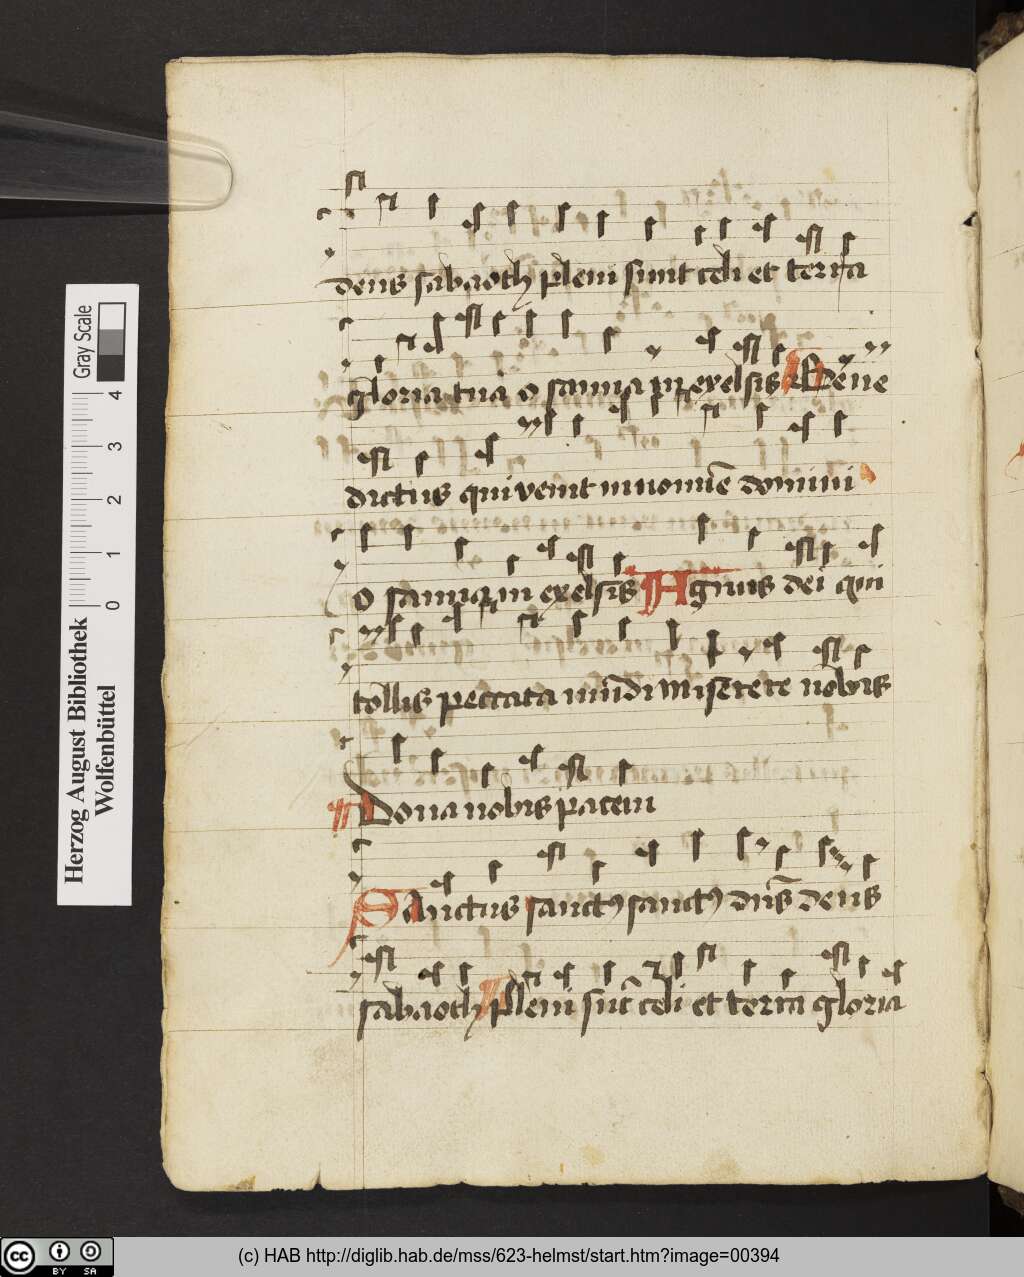 deus sabaoth pleni sunt celi et terra
gloria tua o sanna in exelsis Bene
dictus qui venit in nomīe domini
o sanna in exelsis Agnus dei qui
tollis peccata mūdi miserere nobis
Dona nobis pacem
SAnctus sanctꝰ sanctꝰ dn̄s deus
sabaoth pleni sūt celi et terra gloria
Herzog August Bibliothek
Wolfenbüttel
Gray Scale
0 1 2 3 4
cc BY SA
(c) HAB http://diglib.hab.de/mss/623-helmst/start.htm?image=00394